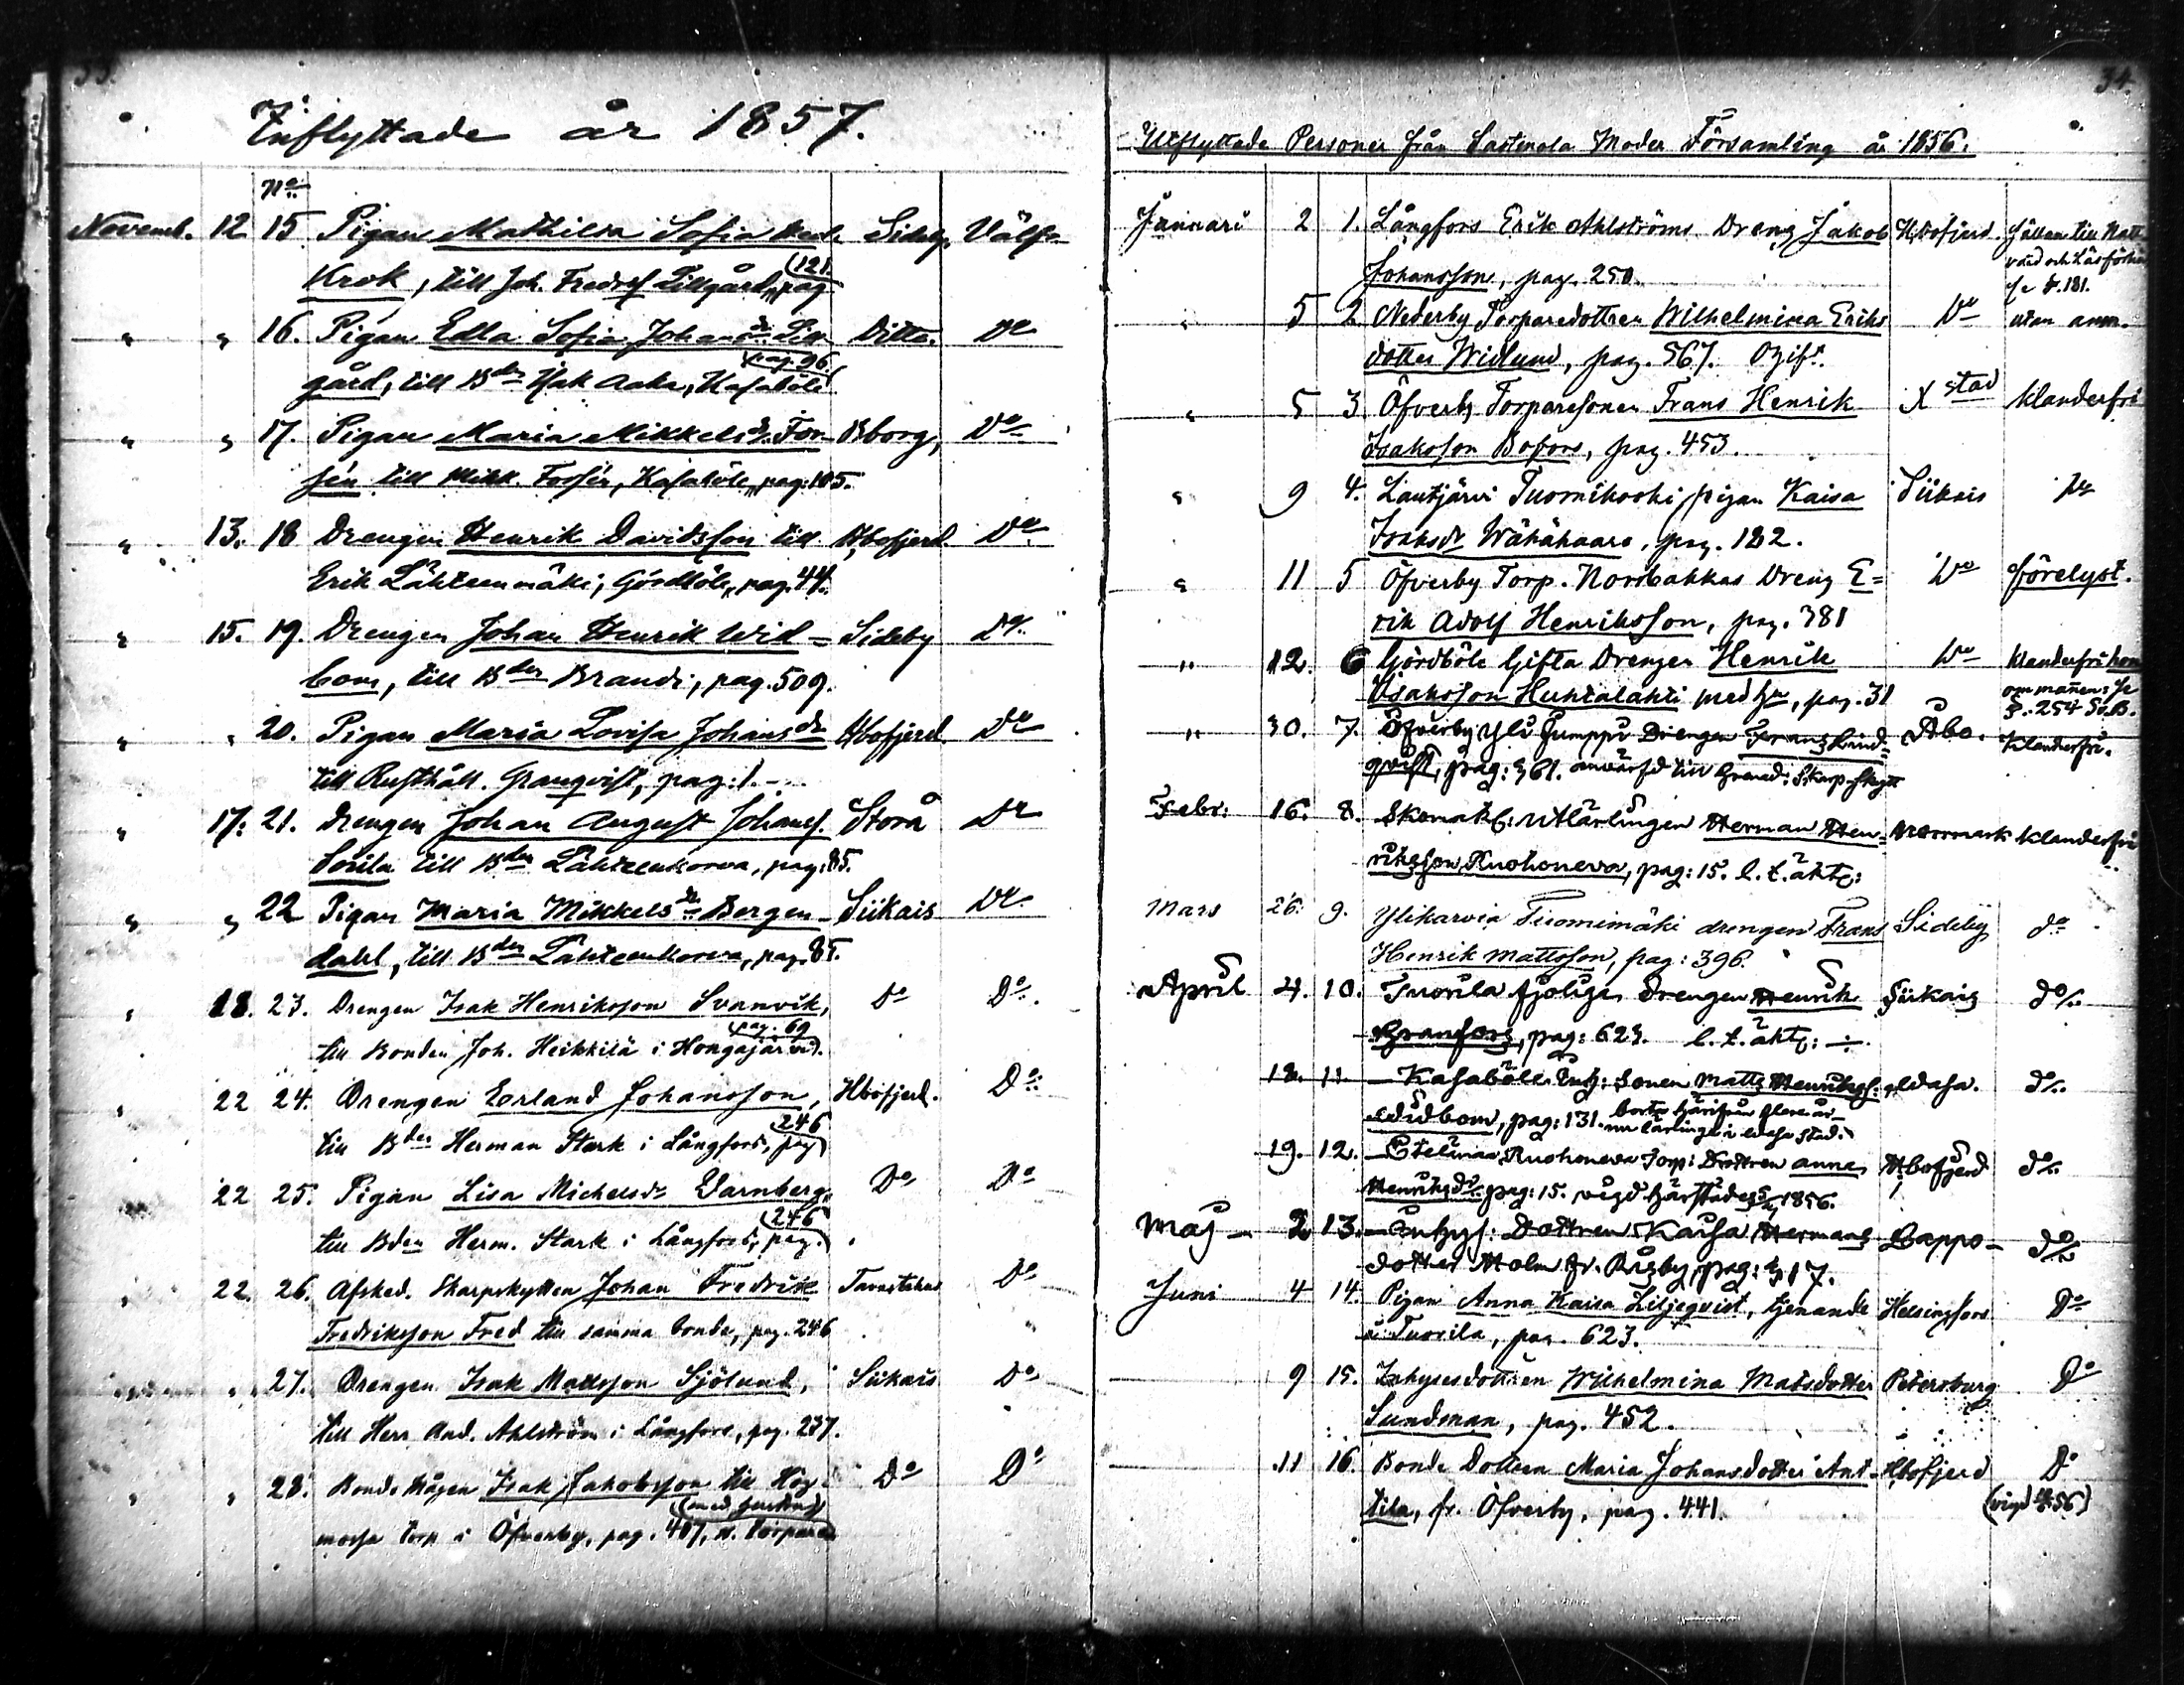 33.
Inflyttade år 1857.
No
Novemb. 12 15 Pigan Mathilda Sofia Sideby Välfr.
Krok, till Joh. Fredrsf Lillgård, pag (121.
" " 16. Pigan Edla Sofia Johansdr Lill Ditto. Do
gård, till Bden Isak Aaka, Kasaböle (pag. 96.
" " 17. Pigan Maria Mikkelsdr. Fors- Bborg, Do
sén till Mikk. Forsén, Kasaböle, pag: 105.
" 13. 18 Drengen Henrik Davidsson till Hbofjerd. Do
Erik Lähteenmäki, Gördböle, pag. 44.
" 15. 19. Drengen Johan Henrik Wid= Sideby Do.
bom, till Bden Brandi, pag. 509.
" " 20. Pigan Maria Lovisa Johansdr Hbofjerd. Do
till Rusthåll. Granqvist, pag: 1.
" 17: 21. Drengen Johan August Johansf. Storå Do
Sorila till Bden Lähteenkorva, pag: 85.
" " 22 Pigan Maria Mikkelsdr Bergen- Siikais Do
dahl, till Bden Lähteenkorva, pag. 85.
" 18. 23. Drengen Isak Henriksson Svanvik, Do Do.
till Bonden Joh. Heikkilä i Hongajärvi. (pag. 69
" 22 24. Drengen Erland Johansson, Hbofjerd. Do
till Bden Herman Stark i Långfors, pag (246
22 25. Pigan Lisa Michelsdr Varnberg, Do Do
till Bden Herm. Stark i Långfors, pag. (246
" 22 26. Afsked. Skarpskytten Johan Fredrik Tavastehus Do
Fredriksson Fred till samma bonde, pag. 246
" " 27. Drengen Isak Mattsson Sjölund, Siikais Do
till Herr And. Ahlström i Långfors, pag. 237.
" " 28. Bonde Mågen Isak Jakobsson till Hög- Do Do
mossa torp i Öfverby, pag. 407, s. torpare (med hustru)
34.
Utflyttade Personer från Sastmola Moder Församling år 1856.
Januari 2 1. Långfors Erik Ahlströms Dreng Jakob Hbofjerd. fällan till Natt-
Johansson, pag. 250. vard och Läsförhör
se p. 181.
" 5 2 Nederby Torparedottren Wilhelmina Eriks Do utan anm.
dotter Widlund, pag. 567. Ogift.
" 5 3 Öfverby Torparesonen Frans Henrik X stad klanderfri
Isaksson Bofors, pag. 453.
" 9 4. Lautjärvi Tuomikoski pigan Kaisa Siikais Do
Isaksdr Wähähaara, pag. 182.
" 11 5 Öfverby Torp. Norrbakkas Dreng E= Do förelyst.
rik Adolf Henriksson, pag. 381
" 12. 6 Gördböle Gifta Drengen Henrik Do klanderfri hon
Isaksson Huhtalahti med hu, pag. 31 om mañen: se
p. 254 S.B.
" 30. 7. Öfverby Yli Jumppu Drengen Frans Lind- Åbo. Klanderfri.
qvist, pag: 361. anvärfd till Grenad: Skarp-Skytt
Febr: 16. 8. Skomak: utlärlingen Herman Hen- Norrmark klanderfri
riksson Ruohoneva, pag: 15. l. t. äkt:
Mars 26. 9. Ylikarvia Tuomimäki drengen Frans Sideby do
Henrik Mattsson, pag: 396.
April 4. 10. Tuorila fjoliga Drengen Henrik Siikais do
Granfors, pag: 623. l. t. äkt:
18. 11. Kasaböle Inh: Sonen Matts Henriksf. Wasa. do
Widbom, pag: 131. borta härifrån flere år
nu lärling i Wasa stad.
19. 12. Etelmaa Ruohoneva Torp: Dottren Anna Hbofjerd do
Henriksdr. pag: 15. vigd härstädes 1856.
Maj 2 13. Inhys: Dottren Kaisa Hermans Lappo- do
dotter Holm fr. Påsby, pag: 517.
Juni 4 14. Pigan Anna Kaisa Liljeqvist, tjenande Helsingfors Do
i Tuorila, pag. 623.
9 15. Inhysesdottren Wilhelmina Matsdotter Petersburg Do
Sundman, pag. 452.
11 16. Bonde Dottren Maria Johansdotter Ant- Hbofjerd Do
tila, fr. Öfverby, pag. 441. (vigd 56)